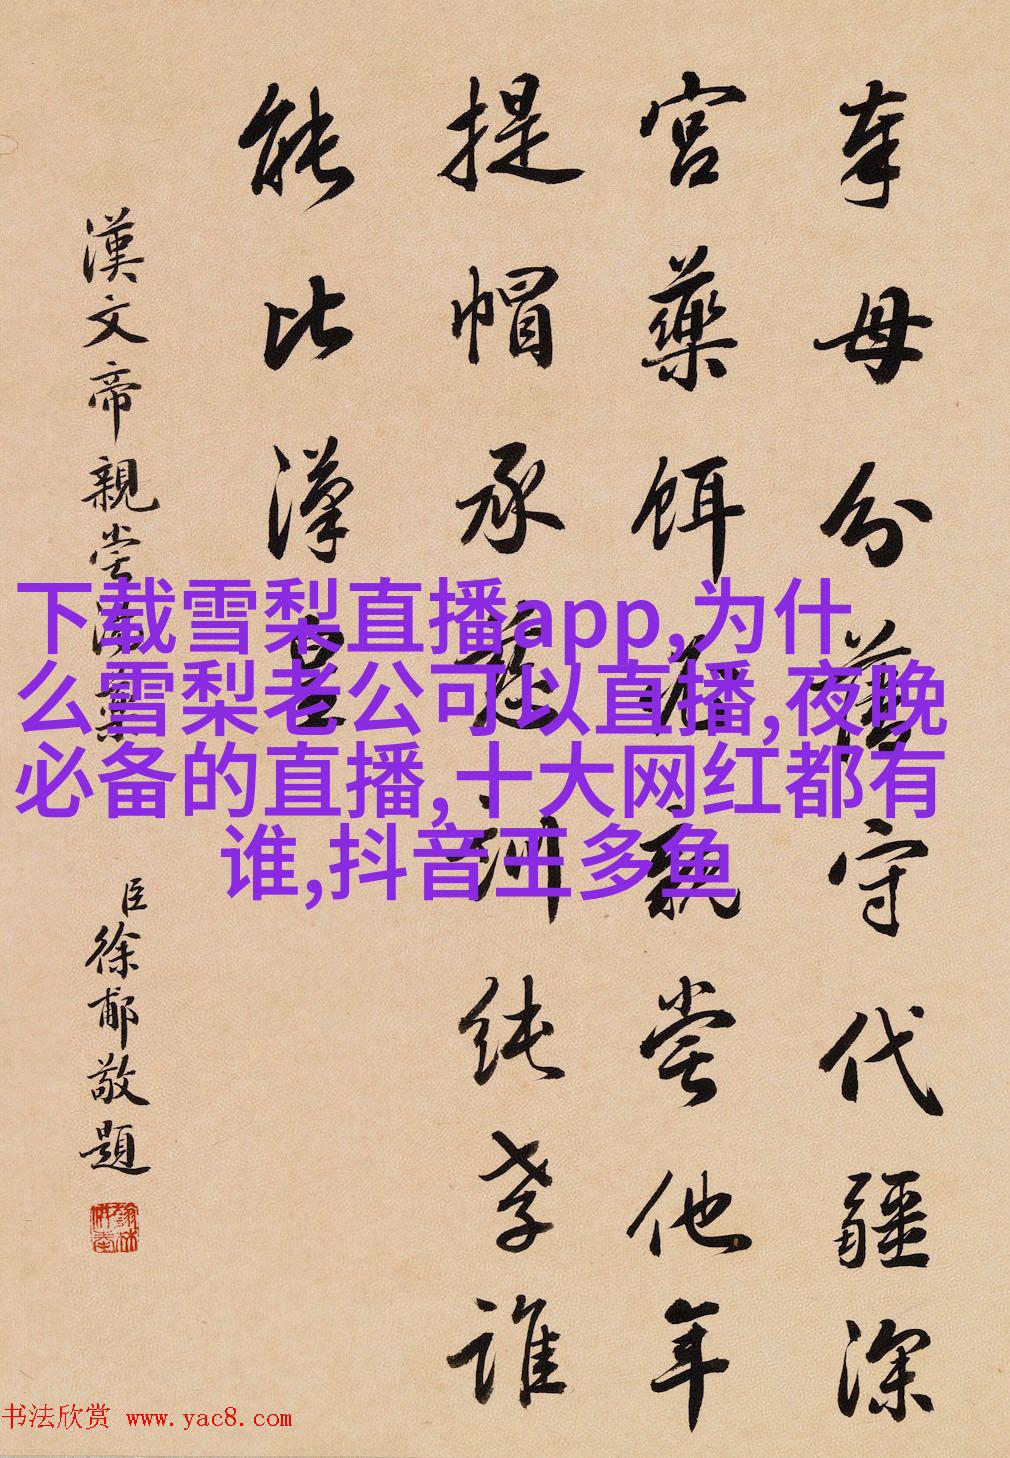 奉母分藩守代疆深
宮藥餌必親嘗他年
提帽承慈訓純孝誰
能比漢皇
漢文帝親嘗湯藥
臣徐郙敬題
下载雪梨直播app,为什
么雪梨老公可以直播,夜晚
必备的直播,十大网红都有
谁,抖音王多鱼
书法欣赏 www.yac8.com